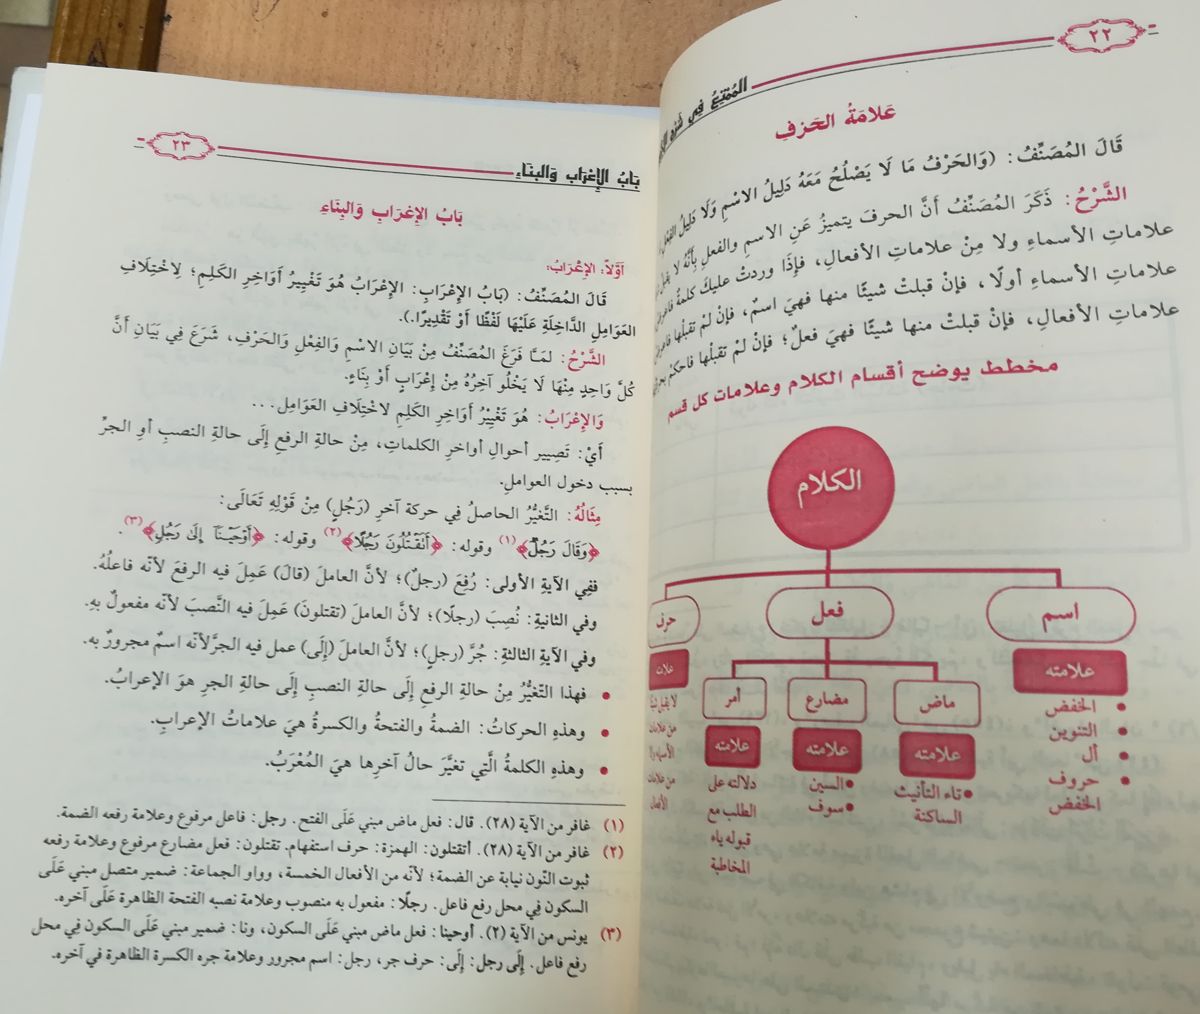 ٢٢
المُمْتِعُ فِي شَرْحِ
عَلَامَةُ الحَرْفِ
قَالَ المُصَنِّفُ: (وَالحَرْفُ مَا لَا يَصْلُحُ مَعَهُ دَلِيلُ الاسْمِ وَلَا دَلِيلُ الفِعْلِ
الشَّرْحُ: ذَكَرَ المُصَنِّفُ أَنَّ الحرفَ يتميزُ عَنِ الاسمِ والفعلِ بِأَنَّهُ لا يقبلُ
علاماتِ الأسماءِ ولا مِنْ علاماتِ الأفعالِ، فإِذَا وردتْ عليكَ كلمةٌ فاعرض
علاماتِ الأسماءِ أولًا، فإنْ قبلتْ شيئًا منها فهيَ اسمٌ، فإنْ لمْ تقبلْها فاعرض
علاماتِ الأفعالِ، فإنْ قبلتْ منها شيئًا فهيَ فعلٌ؛ فإنْ لمْ تقبلْها فاحكمْ
مخطط يوضح أقسام الكلام وعلامات كل قسم
الكلام
اسم
فعل
حرف
علامته
الخفض
التنوين
أل
حروف
الخفض
ماض
مضارع
أمر
علامته
تاء التأنيث
الساكنة
علامته
السين
سوف
علامته
دلالته على
الطلب مع
قبوله ياء
المخاطبة
لا يقبل
من علامات
من علامات
٢٣
بَابُ الإِعْرَابِ وَالبِنَاءِ
بَابُ الإِعْرَابِ وَالبِنَاءِ
أَوَّلاً: الإِعْرَابُ:
قَالَ المُصَنِّفُ: (بَابُ الإِعْرَابِ: الإِعْرَابُ هُوَ تَغْيِيرُ أَوَاخِرِ الكَلِمِ؛ لِاخْتِلَافِ
العَوَامِلِ الدَّاخِلَةِ عَلَيْهَا لَفْظًا أَوْ تَقْدِيرًا.).
الشَّرْحُ: لَمَّا فَرَغَ المُصَنِّفُ مِنْ بَيَانِ الاسْمِ وَالفِعْلِ وَالحَرْفِ، شَرَعَ فِي بَيَانِ أَنَّ
كُلَّ وَاحِدٍ مِنْهَا لَا يَخْلُو آخِرُهُ مِنْ إِعْرَابٍ أَوْ بِنَاءٍ.
وَالإِعْرَابُ: هُوَ تَغْيِيْرُ أَوَاخِرِ الكَلِمِ لاخْتِلَافِ العَوَامِلِ...
أَيْ: تَصِيير أحوالِ أواخرِ الكلماتِ، مِنْ حالةِ الرفعِ إِلَى حالةِ النصبِ أوِ الجرِّ
بسببِ دخولِ العواملِ.
مِثَالُهُ: التَّغيُّرُ الحاصلُ فِي حركة آخرِ (رَجُلٍ) مِنْ قَوْلِهِ تَعَالَى:
﴿وَقَالَ رَجُلٌ﴾(١) وقوله: ﴿أَتَقْتُلُونَ رَجُلًا﴾(٢) وقوله: ﴿أَوْحَيْنَآ إِلَىٰ رَجُلٍ﴾(٣).
ففِي الآيةِ الأولى: رُفِعَ (رجلٌ)؛ لأنَّ العاملَ (قالَ) عَمِلَ فيه الرفعَ لأنّه فاعلُهُ.
وفي الثانيةِ: نُصِبَ (رجلًا)؛ لأنَّ العاملَ (تقتلونَ) عَمِلَ فيه النَّصبَ لأنّه مفعولٌ بهِ.
وفي الآيةِ الثالثةِ: جُرَّ (رجلٍ)؛ لأنَّ العاملَ (إلَى) عمل فيه الجرَّ لأنّه اسمٌ مجرورٌ به.
• فهذا التّغيُّرُ مِنْ حالةِ الرفعِ إِلَى حالةِ النصبِ إِلَى حالةِ الجرِ هوَ الإعرابُ.
• وهذهِ الحركاتُ: الضمةُ والفتحةُ والكسرةُ هيَ علاماتُ الإعرابِ.
• وهذهِ الكلمةُ الَّتي تغيَّرَ حالُ آخرِها هيَ المُعْرَبُ.
(١) غافر من الآية (٢٨). قال: فعل ماض مبني عَلَى الفتح. رجل: فاعل مرفوع وعلامة رفعه الضمة.
(٢) غافر من الآية (٢٨). أتقتلون: الهمزة: حرف استفهام. تقتلون: فعل مضارع مرفوع وعلامة رفعه
ثبوت النّون نيابة عن الضمة؛ لأنّه من الأفعال الخمسة، وواو الجماعة: ضمير متصل مبني عَلَى
السكون فِي محل رفع فاعل. رجلًا: مفعول به منصوب وعلامة نصبه الفتحة الظاهرة عَلَى آخره.
(٣) يونس من الآية (٢). أوحينا: فعل ماض مبني عَلَى السكون، ونا: ضمير مبني عَلَى السكون فِي محل
رفع فاعل. إِلَى رجل: إلَى: حرف جر، رجل: اسم مجرور وعلامة جره الكسرة الظاهرة في آخره.